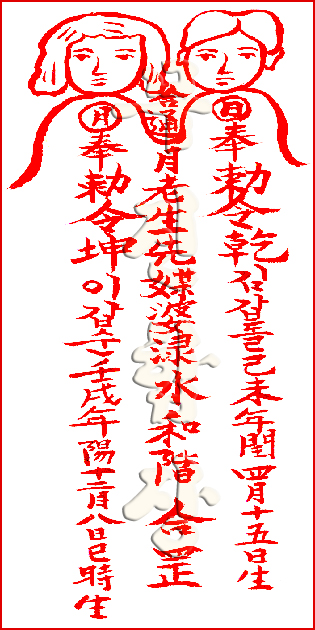 日奉勅令乾김갑돌己未年閏四月十五日生
通月老生先媒婆水和階合正
月奉勅令坤이갑순壬戌年陽十二月八日巳時生